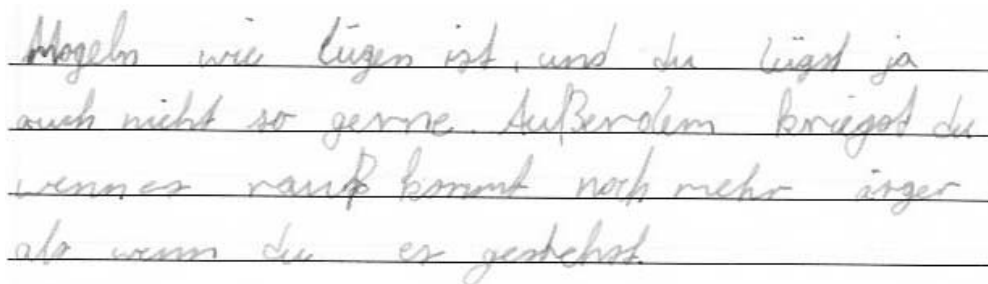 Mogeln wie lügen ist, und du lügst ja
auch nicht so gerne. Außerdem kriegst du
wenn es rauß kommt noch mehr ärger
als wenn du es gestehst.